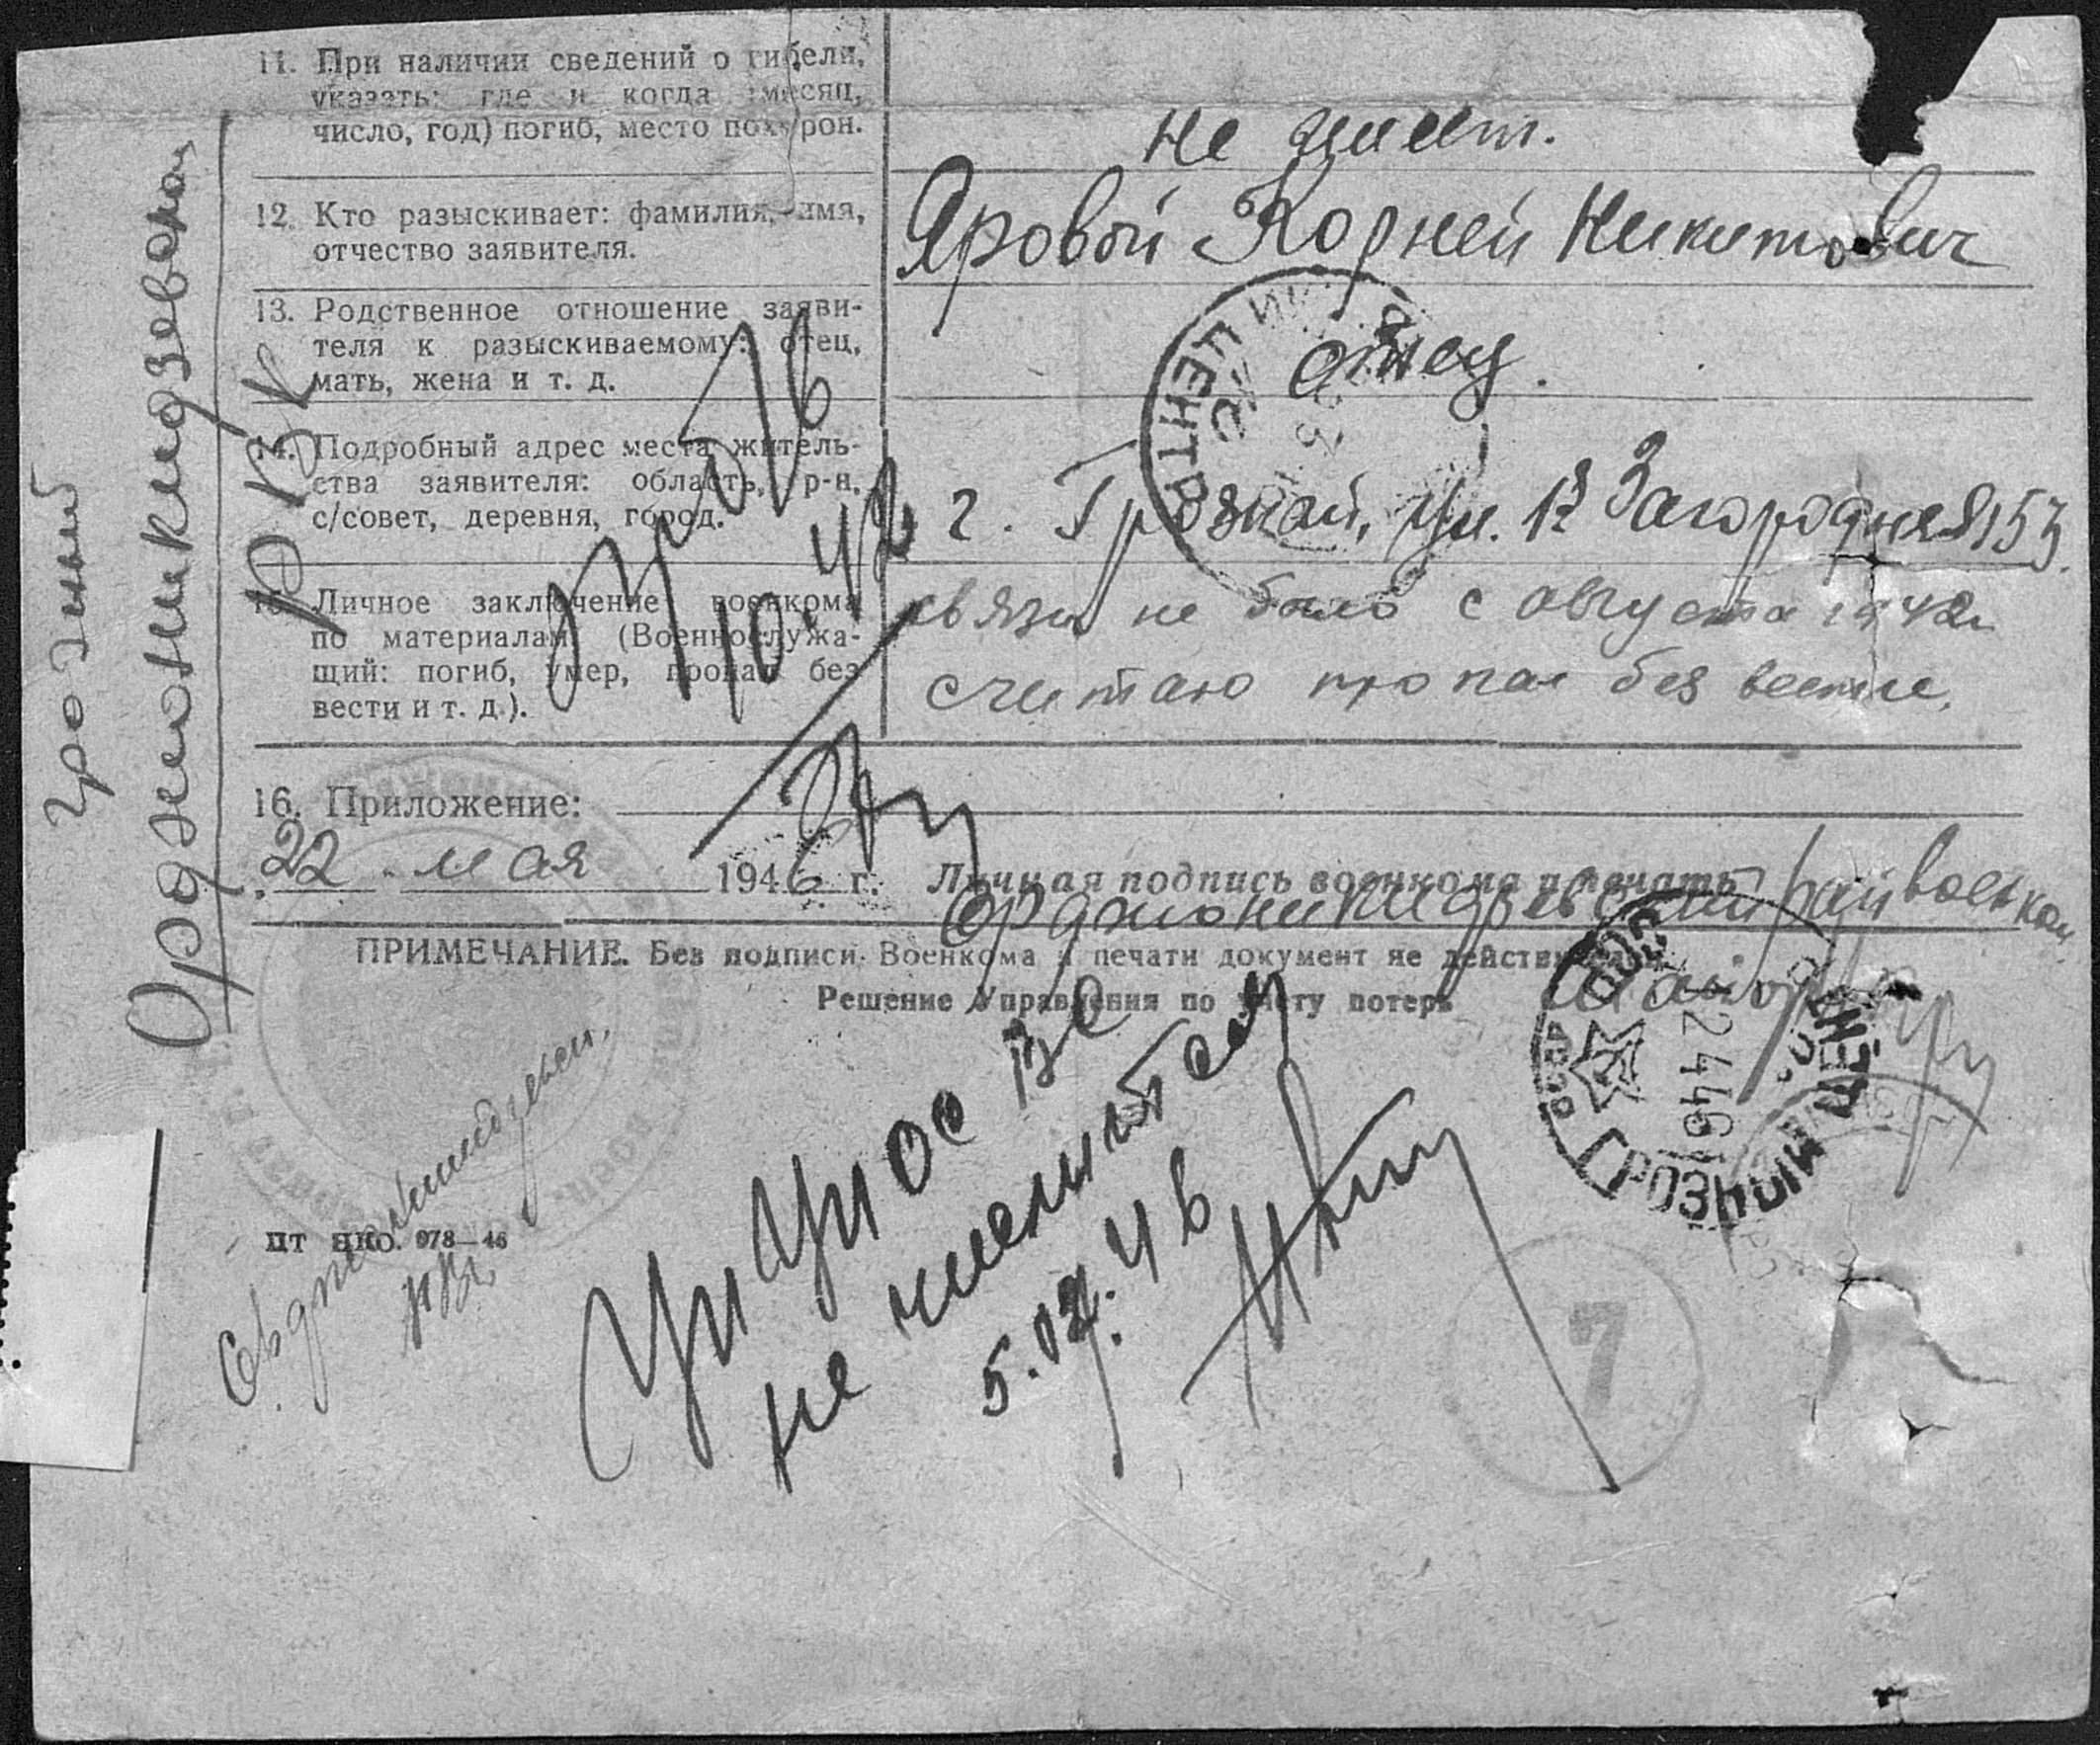 11. При наличии сведений о гибели,
указать: где и когда (месяц,
число, год) погиб, место похорон.
не имеет.
12. Кто разыскивает: фамилия, имя,
отчество заявителя.
Яровой Корней Никитович
13. Родственное отношение заяви-
теля к разыскиваемому: отец,
мать, жена и т. д.
отец.
14. Подробный адрес места житель-
ства заявителя: область, р-н,
с/совет, деревня, город.
г. Грозный, ул. Загородняя 153
15. Личное заключение военкома
по материалам (Военнослужа-
щий: погиб, умер, пропал без
вести и т. д.).
связи не было с августа 1942г
считаю пропал без вести.
16. Приложение:
22 мая 1946 г. Личная подпись военкома и печать
Орджоникидзевский райвоенком
майор
ПРИМЕЧАНИЕ. Без подписи Военкома и печати документ не действителен.
Решение Управления по учету потерь
не числится
5.07.46
ЦТ НКО. 978—46
Грозный
Орджоникидзевский
РВК
10.42
ГРОЗНЫЙ ЦЕНТР.
24461
7